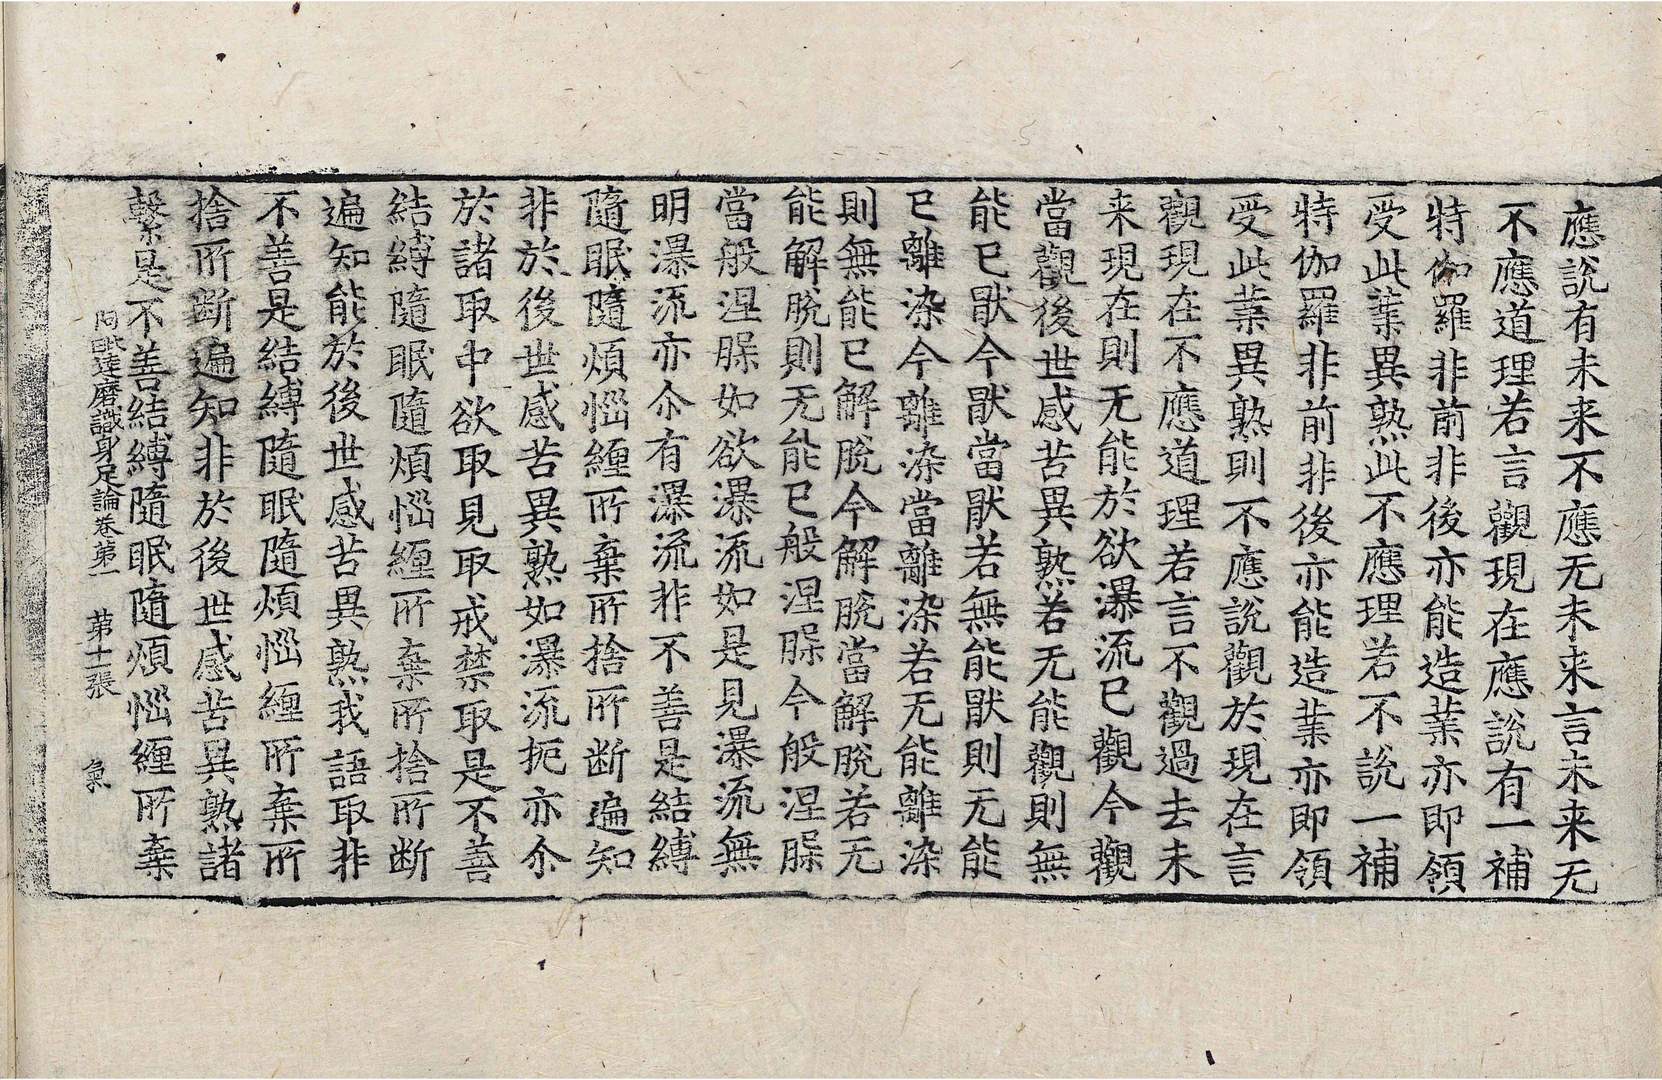 應說有未来不應无未来言未来无
不應道理若言觀現在應說有一補
特伽羅非前非後亦能造業亦即領
受此業異熟此不應理若不說一補
特伽羅非前非後亦能造業亦即領
受此業異熟則不應說觀於現在言
觀現在不應道理若言不觀過去未
来現在則无能於欲瀑流已觀今觀
當觀後世感苦異熟若无能觀則無
能已猒今猒當猒若無能猒則无能
已離染今離染當離染若无能離染
則無能已解脫今解脫當解脫若无
能解脫則无能已般涅槃今般涅槃
當般涅槃如欲瀑流如是見瀑流無
明瀑流亦尒有瀑流非不善是結縛
隨眠隨煩惱纏所棄所捨所断遍知
非於後世感苦異熟如瀑流扼亦尒
於諸取中欲取見取戒禁取是不善
結縛隨眠隨煩惱纏所棄所捨所断
遍知能於後世感苦異熟我語取非
不善是結縛隨眠隨煩惱纏所棄所
捨所断遍知非於後世感苦異熟諸
繫是不善結縛隨眠隨煩惱纏所棄
阿毗達磨識身足論卷第一 第十一張 氣